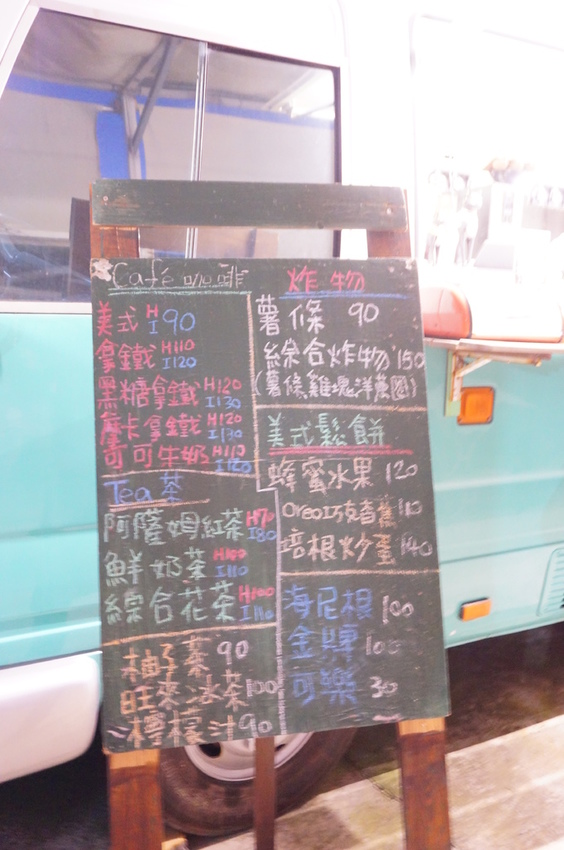 Café 咖啡
美式 H I 90
拿鐵 H110 I120
黑糖拿鐵 H120 I130
摩卡拿鐵 H120 I130
可可牛奶 H110 I120
Tea 茶
阿薩姆紅茶 H70 I80
鮮奶茶 H100 I110
綜合花茶 H100 I110
柚子茶 90
旺來冰茶 100
檸檬汁 90
炸物
薯條 90
綜合炸物 150
(薯條雞塊洋蔥圈)
美式鬆餅
蜂蜜水果 120
Oreo巧克香蕉 110
培根炒蛋 140
海尼根 100
金牌 100
可樂 30